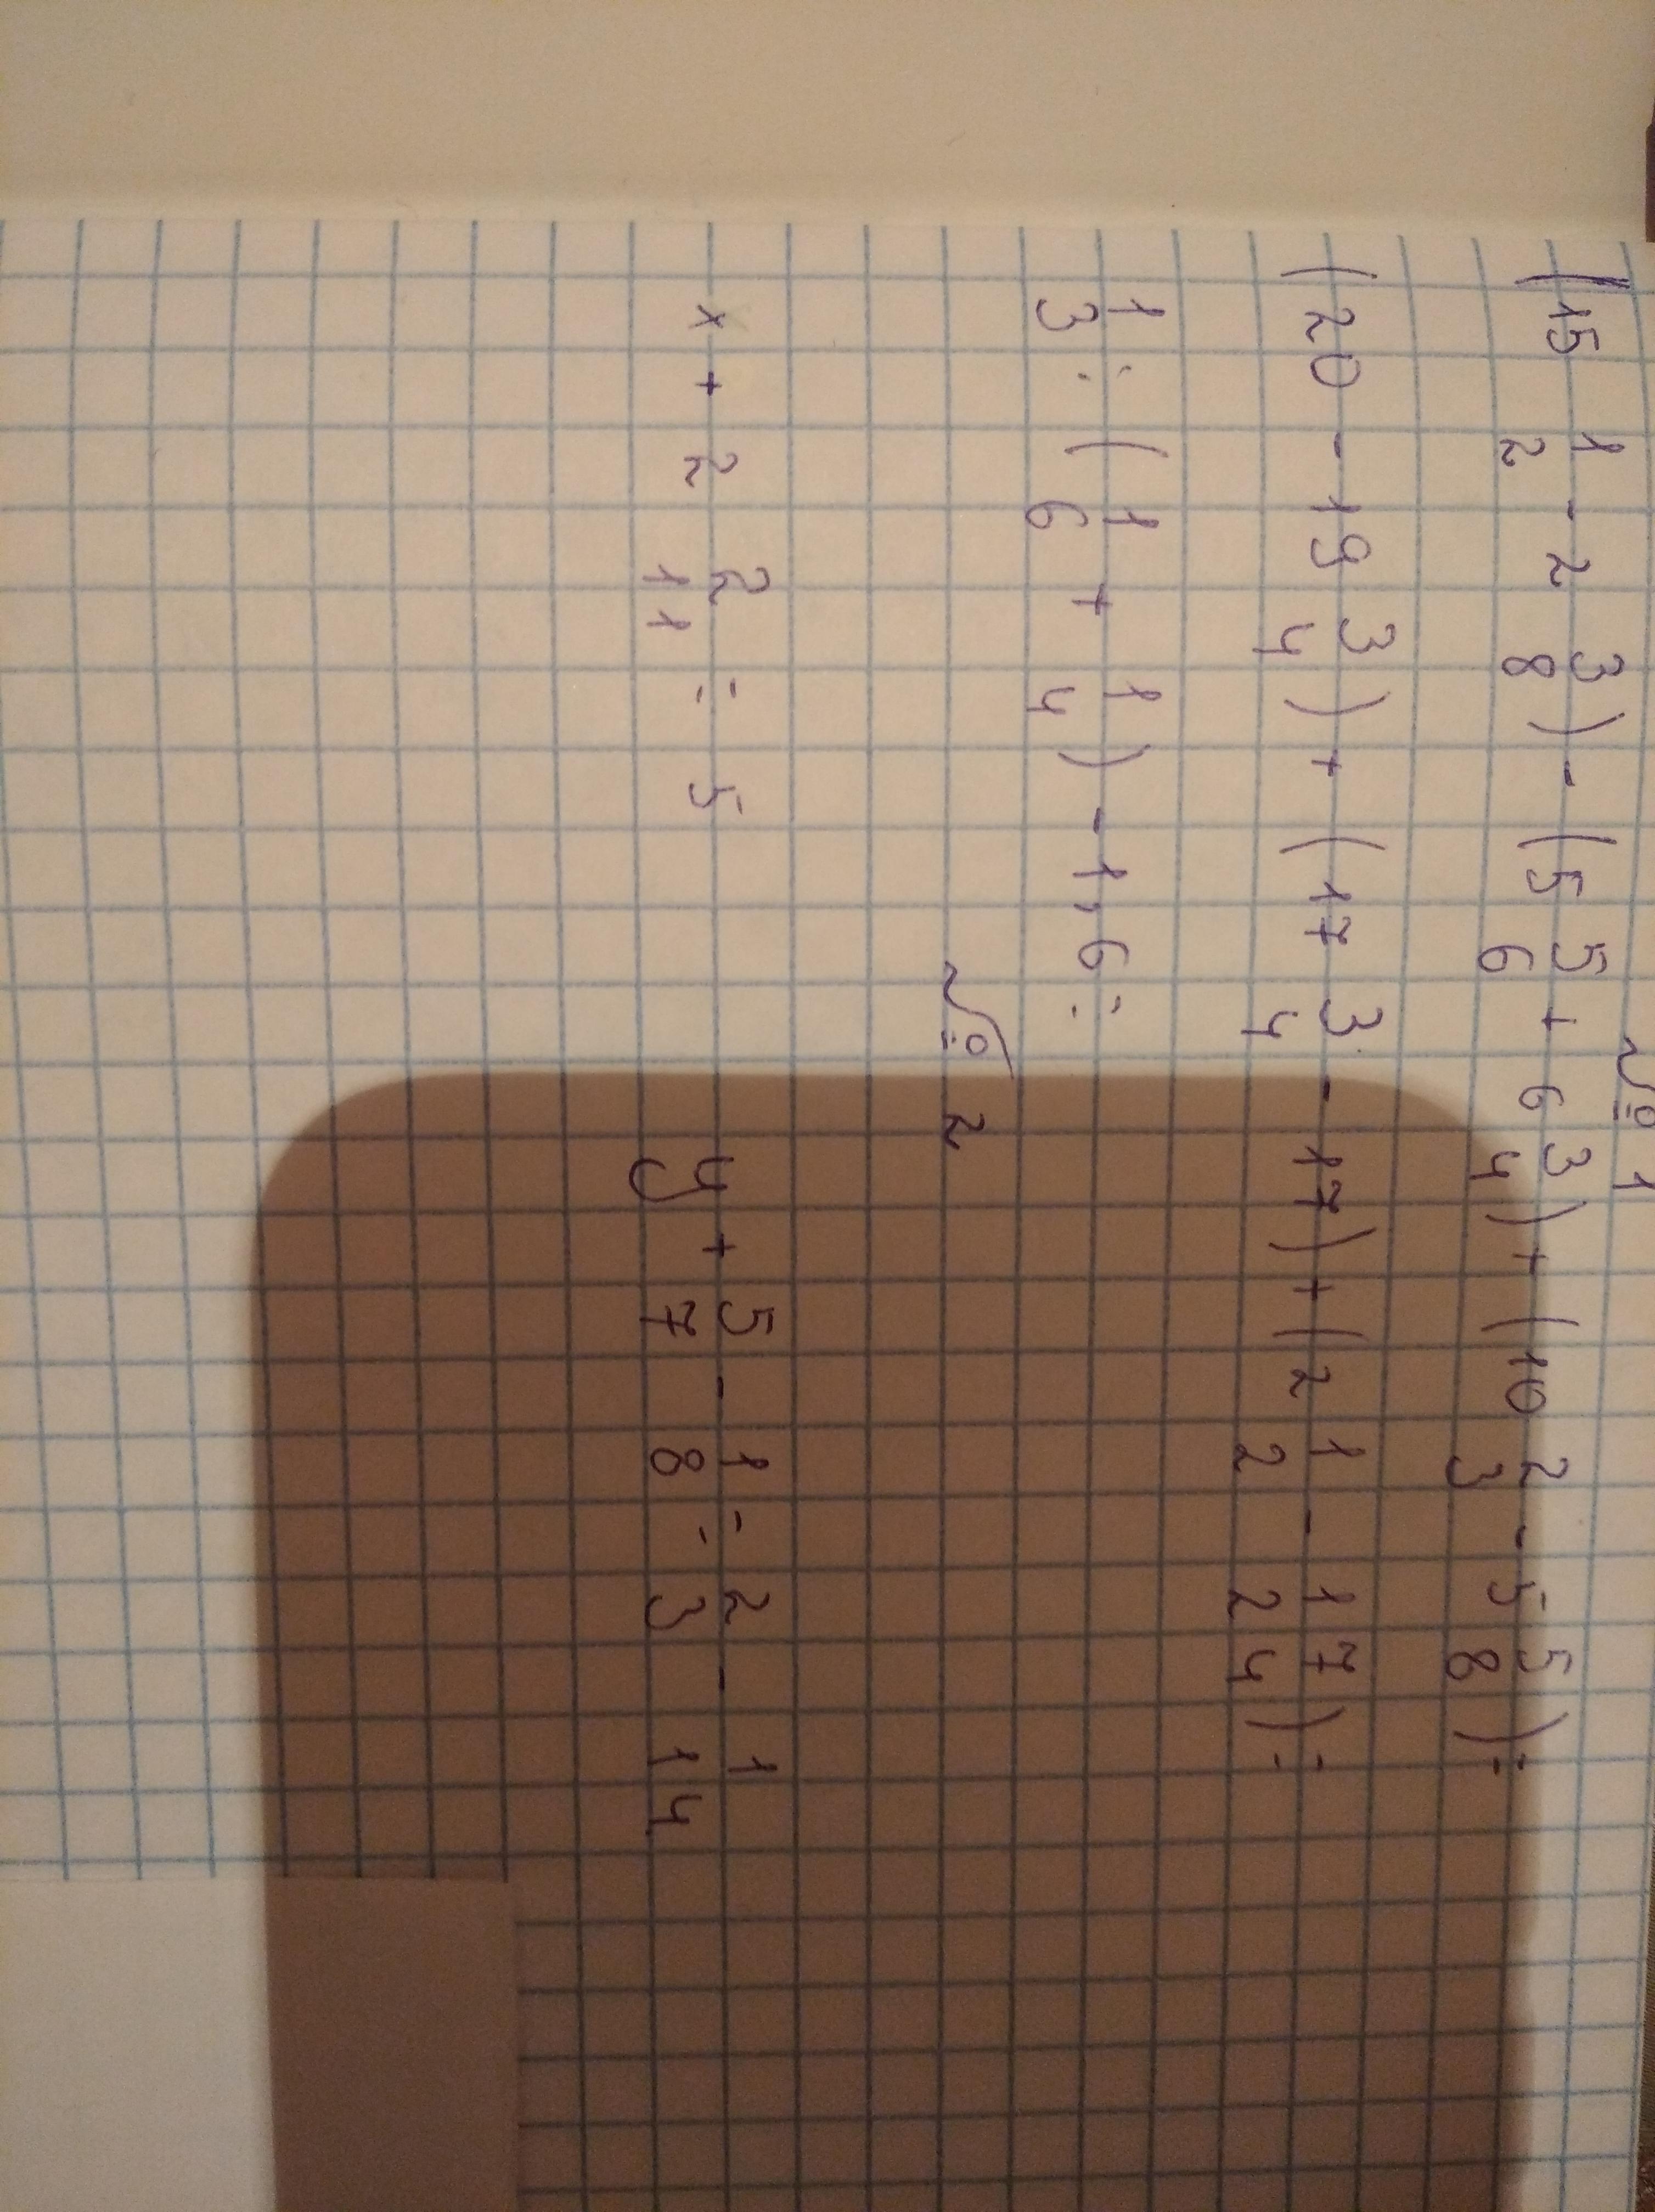 № 1
(15 1/2 - 2 3/8) - (5 5/6 + 6 3/4) + (10 2/3 - 5 5/8) =
(20 - 19 3/4) + (17 3/4 - 17) + (2 1/2 - 17/24) =
1/3 : (1/6 + 1/4) - 1,6 =
№ 2
x + 2 2/11 = 5 y + 5/7 - 1/8 = 2/3 - 1/14